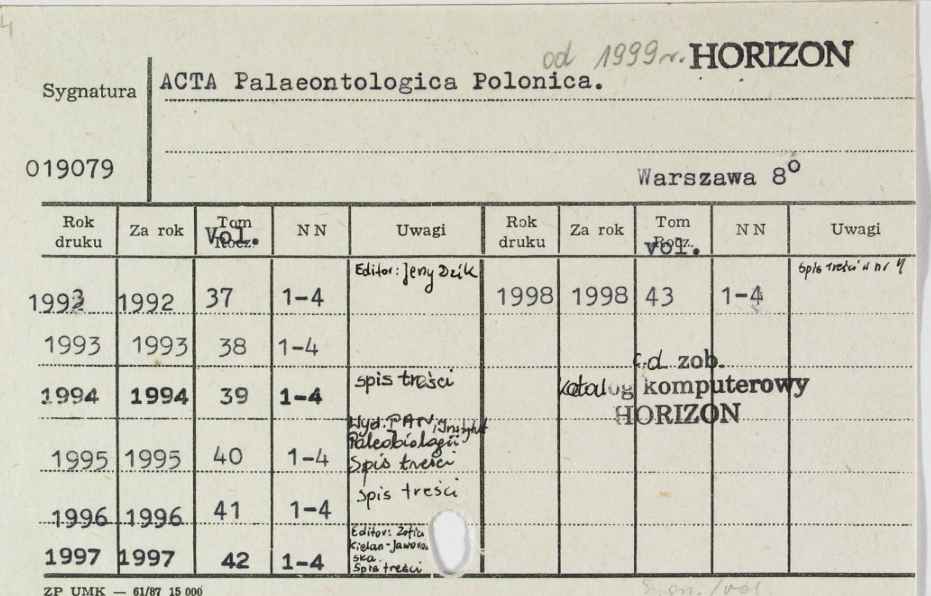 od 1999 r. HORIZON
Sygnatura ACTA Palaeontologica Polonica.
019079
Warszawa 8°
Rok druku Za rok Tom Rocz. Vol. NN Uwagi Rok druku Za rok Tom Rocz. vol. NN Uwagi
1992 1992 37 1-4 Editor: Jerzy Dzik 1998 1998 43 1-4 Spis treści w nr 4
1993 1993 38 1-4
1994 1994 39 1-4 spis treści
c.d zob.
katalog komputerowy
HORIZON
1995 1995 40 1-4 Wyd. PAN, Instytut
Paleobiologii
Spis treści
1996 1996 41 1-4 Spis treści
1997 1997 42 1-4 Editor: Zofia
Kielan-Jaworow
ska.
Spis treści
ZP UMK — 61/87 15 000